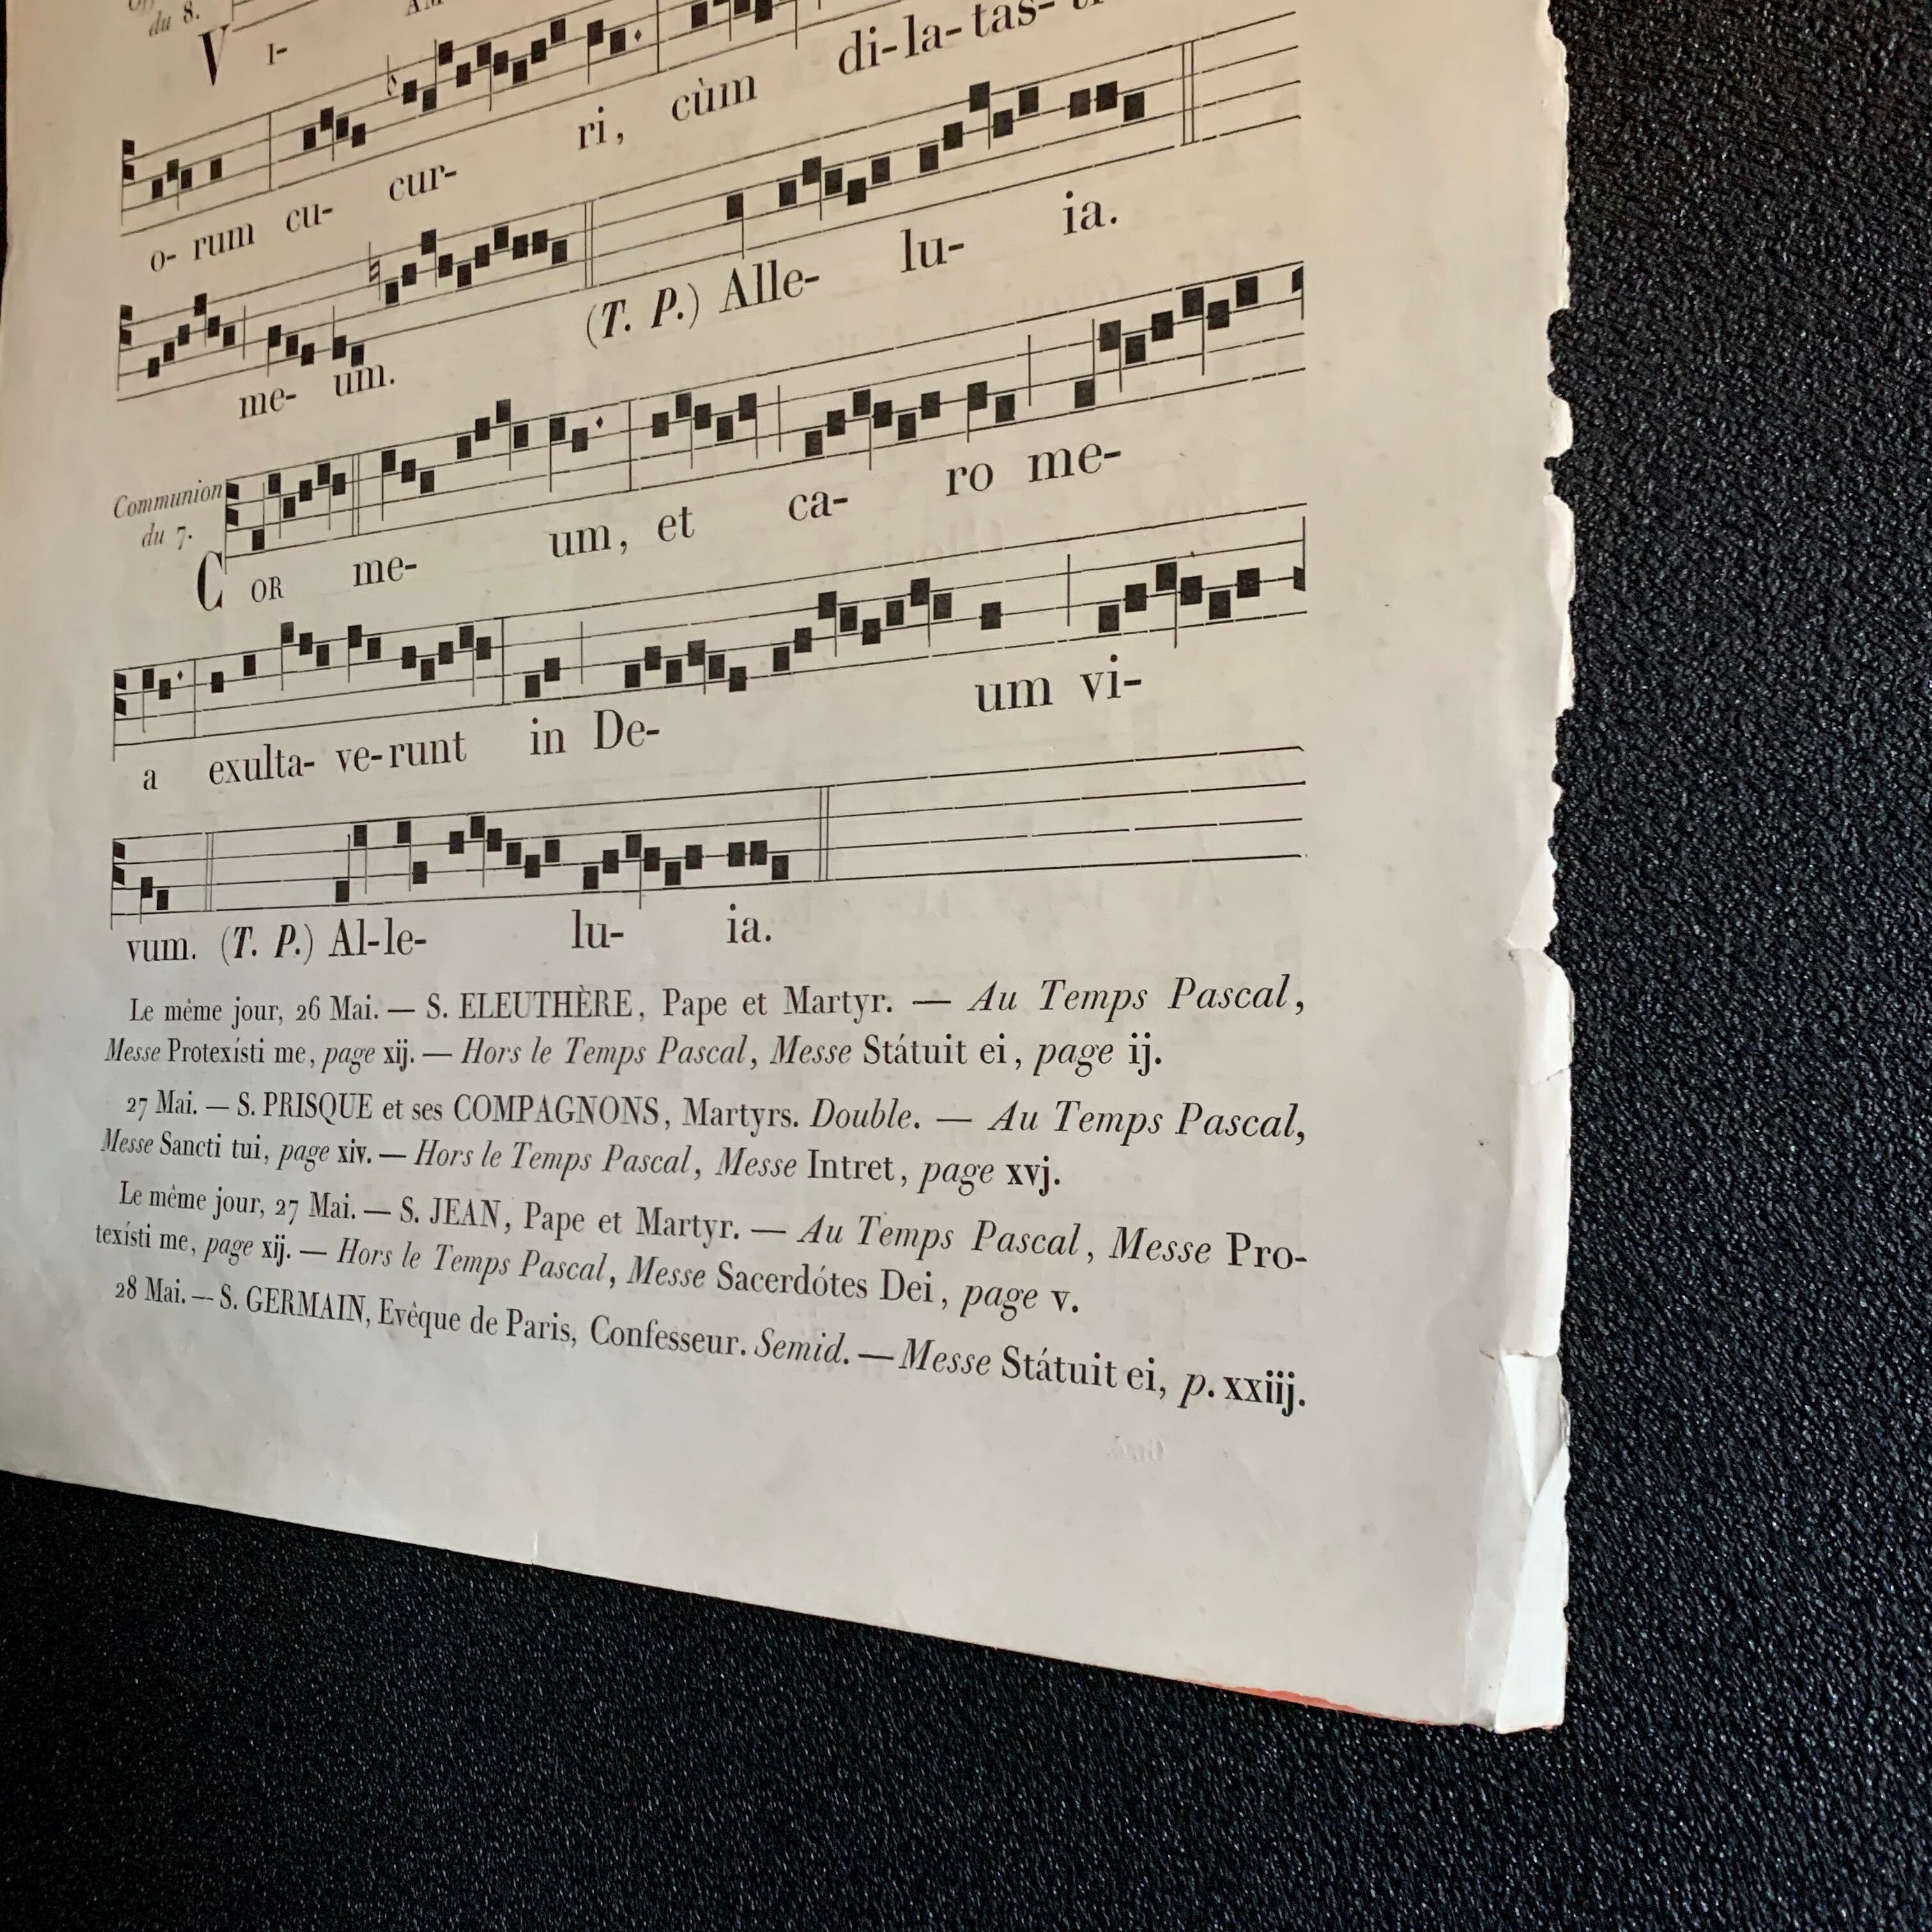 du 8.
V I- AM di-la-tas-
o- rum cu- cur- ri, cùm
me- um. (T. P.) Alle- lu- ia.
Communion
du 7.
COR me- um, et ca- ro me-
a exulta- ve-runt in De- um vi-
vum. (T. P.) Al-le- lu- ia.
Le même jour, 26 Mai. — S. ELEUTHÈRE, Pape et Martyr. — Au Temps Pascal,
Messe Protexísti me, page xij. — Hors le Temps Pascal, Messe Státuit ei, page ij.
27 Mai. — S. PRISQUE et ses COMPAGNONS, Martyrs. Double. — Au Temps Pascal,
Messe Sancti tui, page xiv. — Hors le Temps Pascal, Messe Intret, page xvj.
Le même jour, 27 Mai. — S. JEAN, Pape et Martyr. — Au Temps Pascal, Messe Pro-
texísti me, page xij. — Hors le Temps Pascal, Messe Sacerdótes Dei, page v.
28 Mai. — S. GERMAIN, Evêque de Paris, Confesseur. Semid. — Messe Státuit ei, p. xxiij.